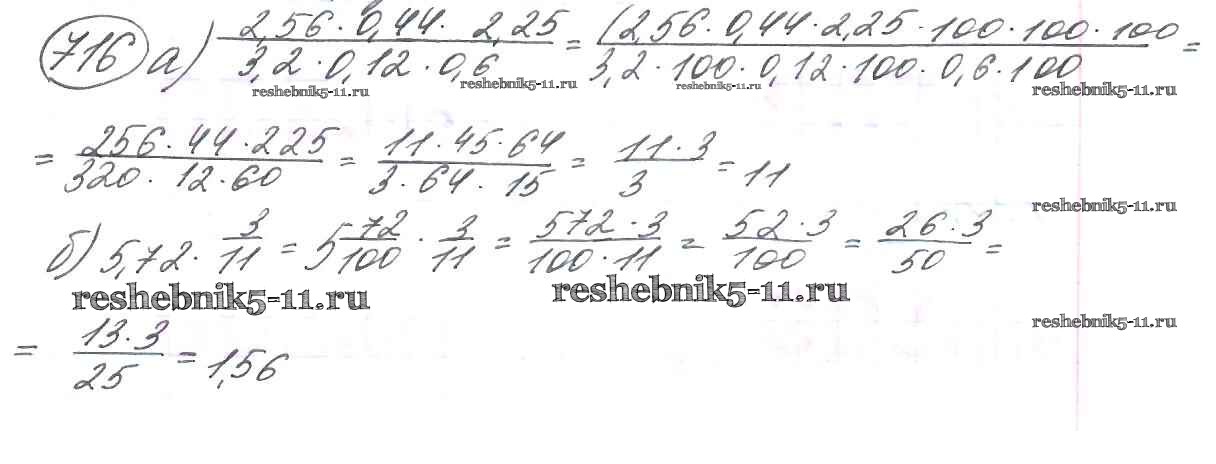 716 а) 2,56 · 0,44 · 2,25 / 3,2 · 0,12 · 0,6 = (2,56 · 0,44 · 2,25 · 100 · 100 · 100 / 3,2 · 100 · 0,12 · 100 · 0,6 · 100 =
reshebnik5-11.ru reshebnik5-11.ru reshebnik5-11.ru reshebnik5-11.ru
= 256 · 44 · 225 / 320 · 12 · 60 = 11 · 45 · 64 / 3 · 64 · 15 = 11 · 3 / 3 = 11
reshebnik5-11.ru
б) 5,72 · 3/11 = 5 72/100 · 3/11 = 572 · 3 / 100 · 11 = 52 · 3 / 100 = 26 · 3 / 50 =
reshebnik5-11.ru reshebnik5-11.ru
reshebnik5-11.ru
= 13 · 3 / 25 = 1,56